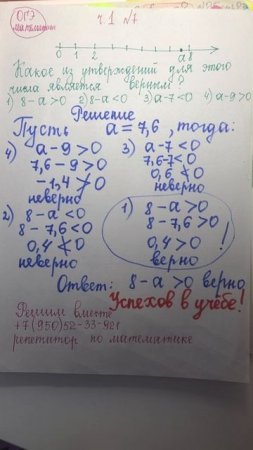 ОГЭ
Математика
ч.1 №7
0 1 2 a 8
Какое из утверждений для этого
числа является верным?
1) 8-a>0 2) 8-a<0 3) a-7<0 4) a-9>0
Решение
Пусть a=7,6, тогда:
4) a-9>0 3) a-7<0
7,6-9>0 7,6-7<0
-1,4≯0 0,6≮0
неверно неверно
2) 8-a<0 1) 8-a>0
8-7,6<0 8-7,6>0
0,4≮0 0,4>0 !
неверно верно
Ответ: 8-a>0 верно
Успехов в учёбе!
Решим вместе
+7(950)52-33-921
репетитор по математике